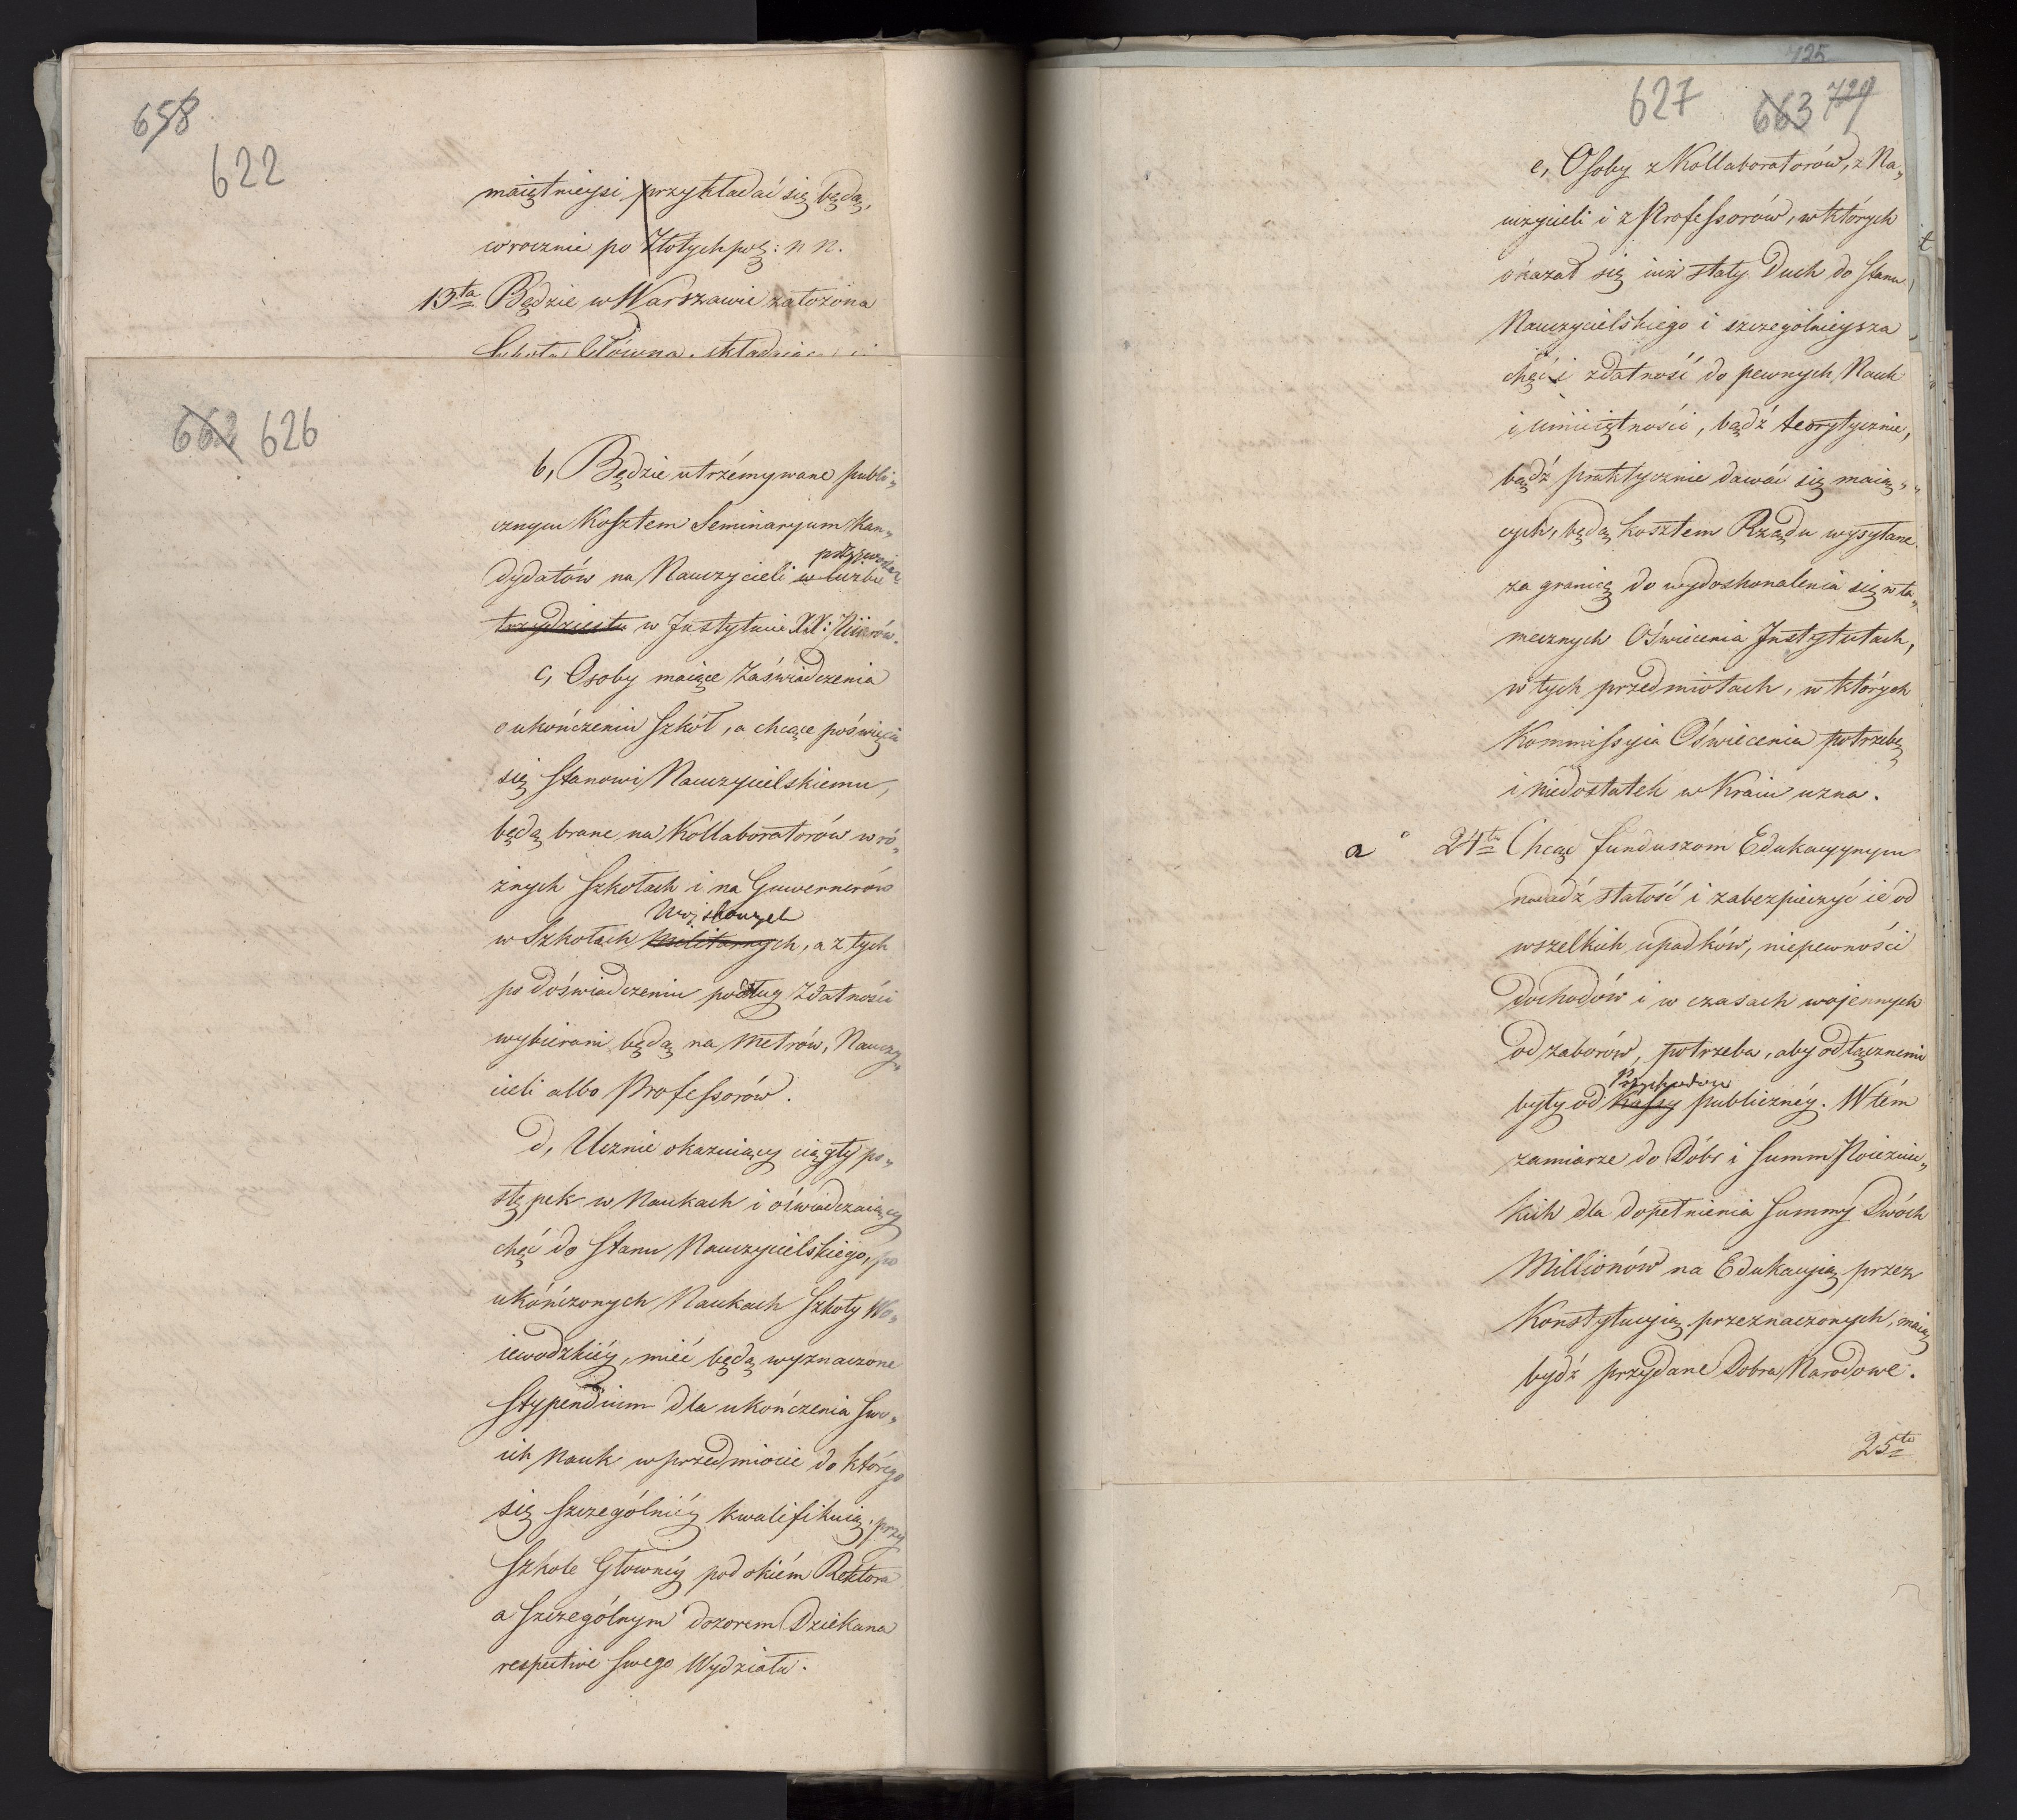 658
622
maiętnieysi przykładać się będą,
corocznie po Złotych pol: n n.
13ta Będzie w Warszawie założona
Szkoła Główna, składaiąca
662 626
b, Będzie utrzémywane publi„
cznym Kosztem Seminaryum Kan„
dydatów na Nauczycieli w liczbie
trzydziestu w Instytucie XX: Piiarów.
c, Osoby maiące Zaświadczenia
o ukończeniu Szkół, a chcące poświęcić
się Stanowi Nauczycielskiemu,
będą brane na Kollaboratorów w ró„
żnych Szkołach i na Guwernerów
Woyskowych
w Szkołach Militarnych, a z tych
po doświadczeniu podług Zdatności
wybierani będą na Metrów, Nauczy„
cieli albo Professorów.
d, Ucznie okazuiący ciągły po„
stępek w Naukach i oświadczaiący
chęć do Stanu Nauczycielskiego, po
ukończonych Naukach Szkoły Wo„
iewodzkiéy, mieć będą wyznaczone
Stypendium dla ukończenia Swo„
ich Nauk w przedmiocie do którego
się Szczególniéy kwalifikuią, przy
Szkole Głownéy pod okiém Rektora
a Szczególnym dozorem Dziekana
respective Swego Wydziału.
725
627 663 729
e, Osoby z Kollaboratorów, z Na„
uczycieli i z Professorów, w których
okazał się iuż stały Duch do Stanu
Nauczycielskiego i szczególnieysza
chęć i zdatność do pewnych Nauk
i Umieiętności, bądź teorytycznie,
bądź praktycznie dawać się maią„
cych, będą kosztem Rządu wysyłane
za granicę do wydoskonalenia się w ta„
mecznych Oświecenia Instytutach,
w tych przedmiotach, w których
Kommissyia Oświecenia potrzebę
i niedostatek w Kraiu uzna.
a 24te Chcąc funduszom Edukacyynym
nadadź stałość i zabezpieczyć ie od
wszelkich upadków, niepewności
dochodów i w czasach wojennych
od zaborów, potrzeba, aby odłącznemi
Przychodow
były od Kassy publicznéy. W tém
zamiarze do Dóbr i Summ Poiezuic„
kich dla dopełnienia Summy Dwóch
Millionów na Edukacyią przez
Konstytucyią przeznaczonych, maią
bydź przydane Dobra Narodowe.
25te